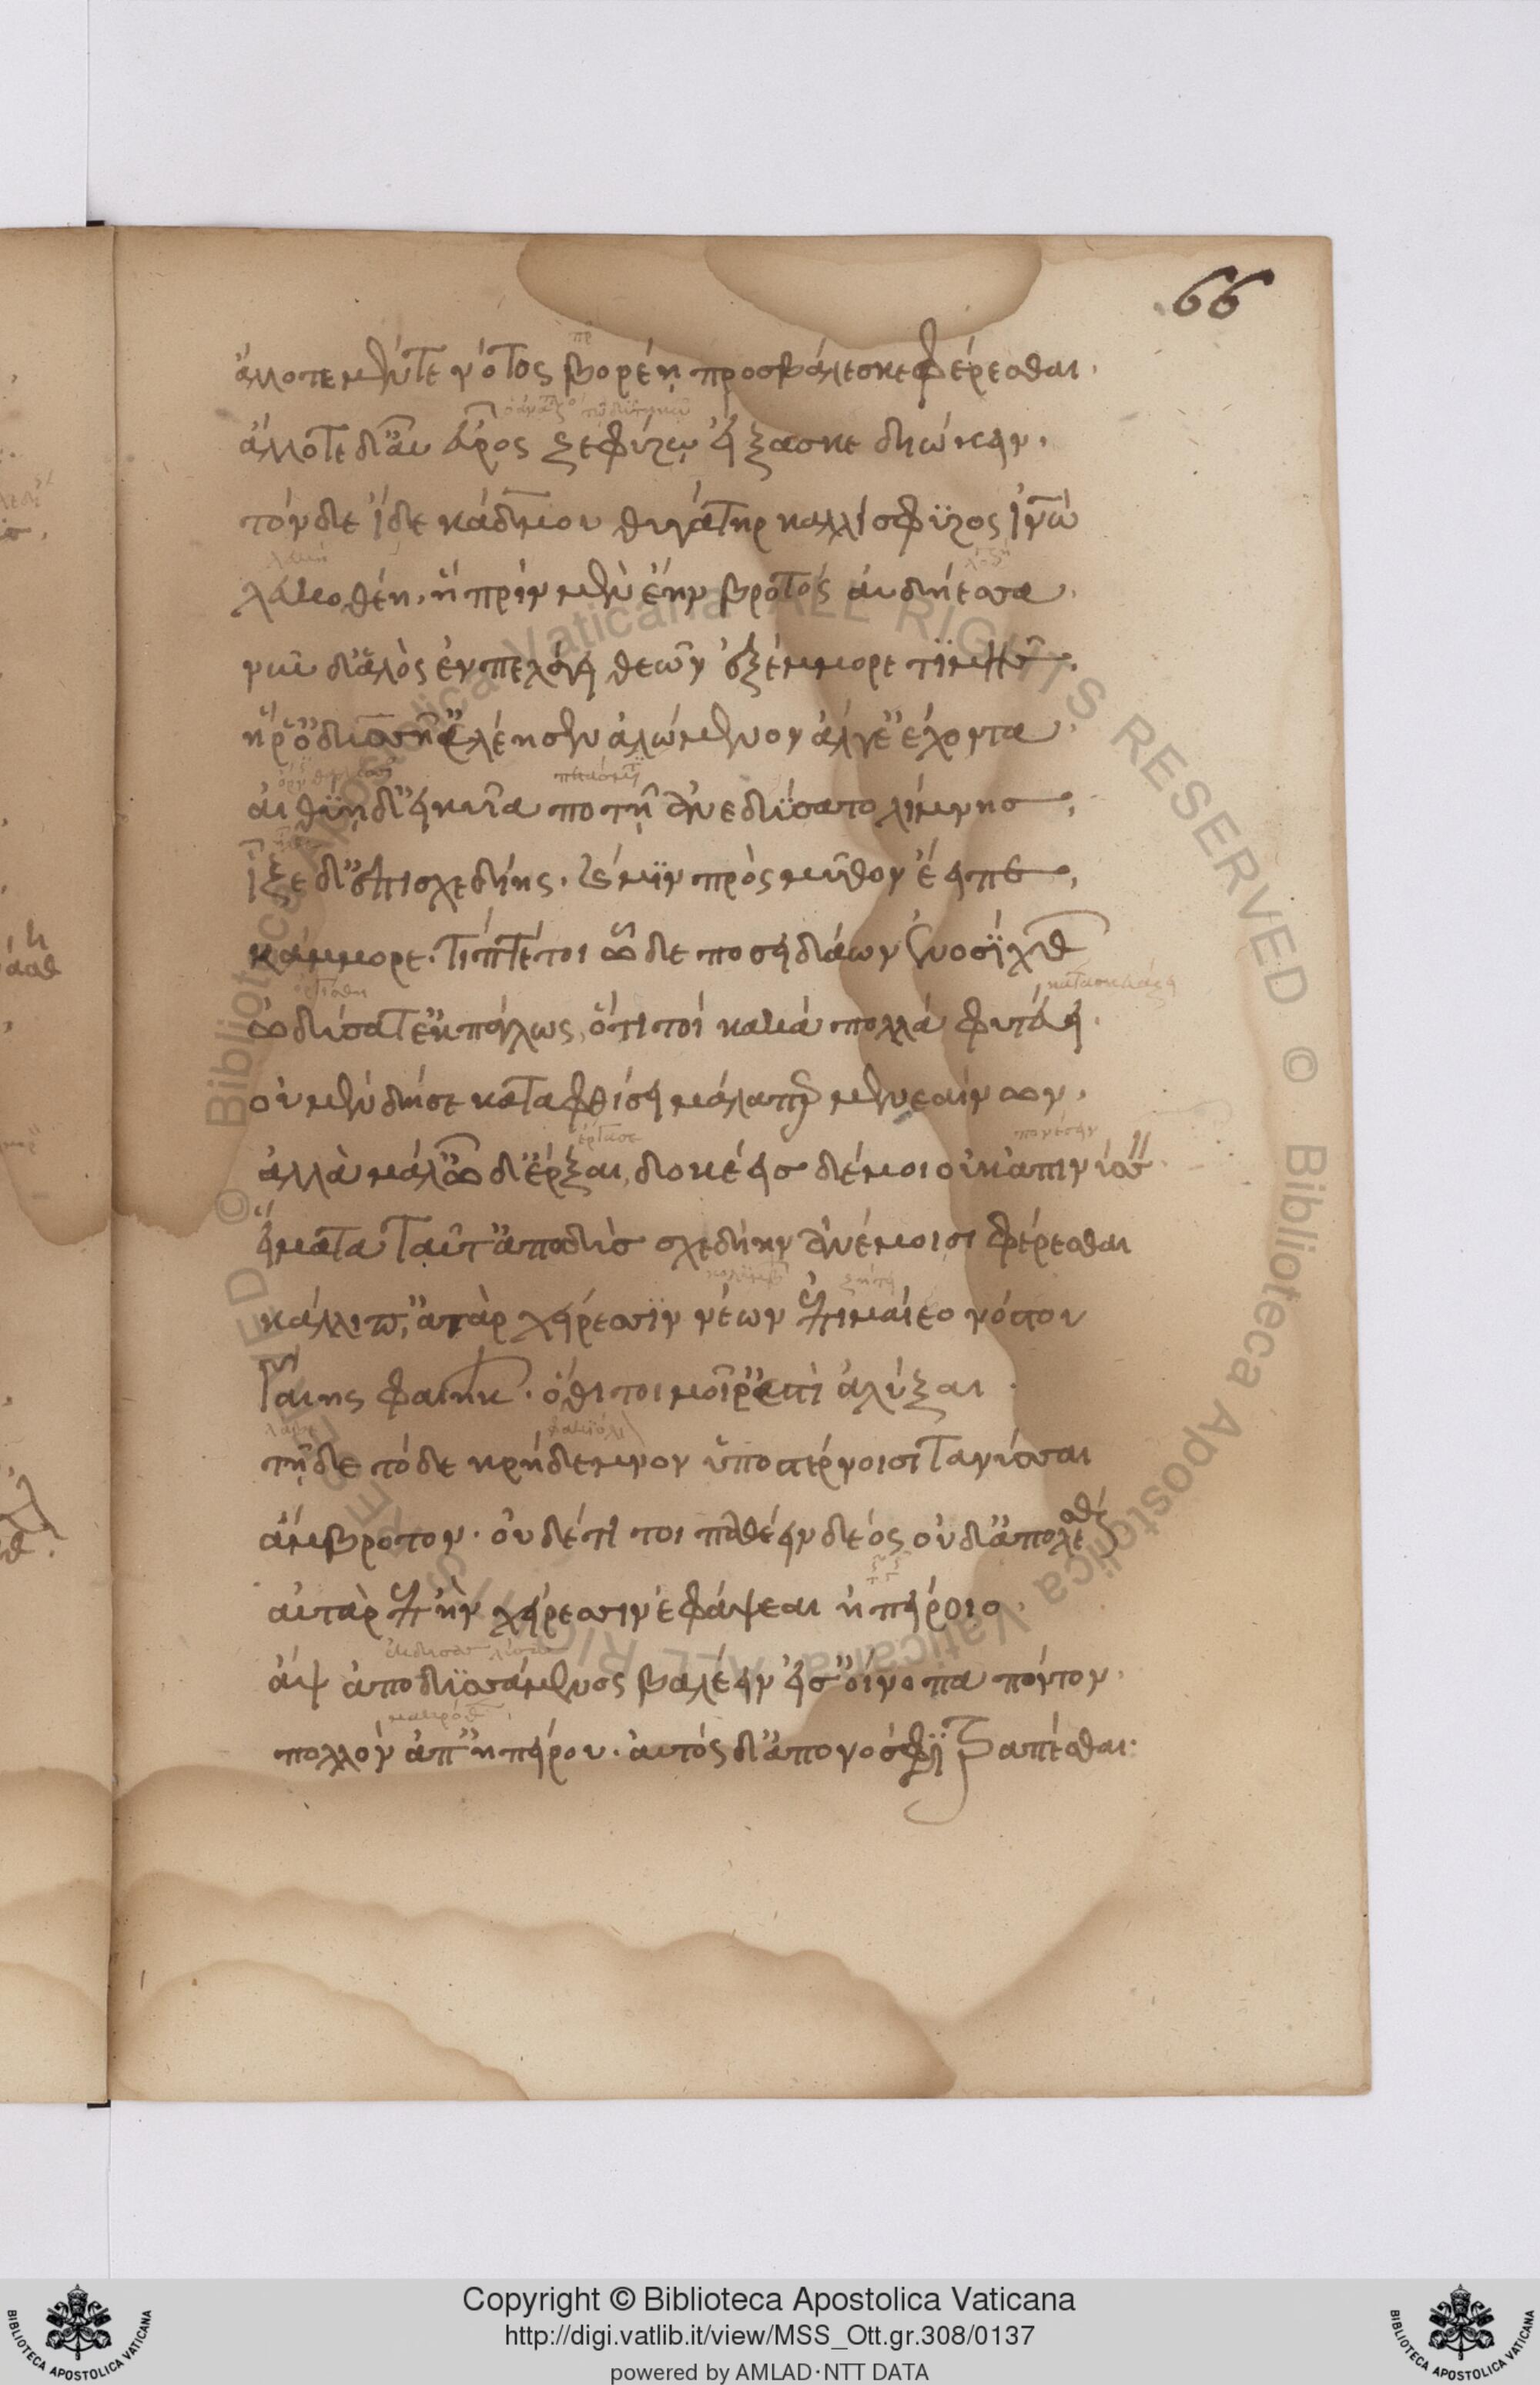 66
ἄλλοτε μέν τε νότος βορέῃ προσβάλεσκε φέρεσθαι.
ἄλλοτε δ' αὖ εὖρος ζεφύρῳ εἴξασκε διώκειν.
τόν δε ἴδε κάδμου θυγάτηρ καλλίσφϋρος ἰνὼ
λευκοθέη, ἣ πρὶν μὲν ἔην βροτὸς αὐδήεσσα.
νῦν δ' ἁλὸς ἐν πελάγει θεῶν ἐξέμμορε τϊμῆς.
ἥ ῥ' ὀδυσσῆ' ἐλέησεν ἀλώμενον ἄλγε' ἔχοντα.
αἰθυίῃ δ' εἰκυῖα ποτῇ ἀνεδύσατο λίμνης,
ἷζε δ' ἐπισχεδίης. καί μϊν πρὸς μῦθον ἔειπε,
κάμμορε. τίπτέ τοι ὧδε ποσειδάων ἐνοσίχθων
ὠδύσατ' ἐκπάγλως, ὅτι τοί κακά πολλά φυτεύει.
οὐ μὲν δήσε καταφθίσει μάλα περ μενεαίνων.
ἀλλὰ μάλ' ὧδ' ἔρξαι, δοκέεις δέ μοι οὐκ ἀπινύσσειν.
εἵματα ταῦτ' ἀποδὺς σχεδίην ἀνέμοισι φέρεσθαι
κάλλιπ', ἀτὰρ χείρεσσϊν νέων ἐπιμαίεο νόστου
γαίης φαιήκων. ὅθι τοι μοῖρ' ἐστὶ ἀλύξαι.
τῇ δε τόδε κρήδεμνον ὑπο στέρνοισι τανύσσαι
ἄμβροτον. οὐδέ τί τοι παθέειν δέος οὐδ' ἀπολέσθαι
αὐτὰρ ἐπὴν χείρεσσιν ἐφάψεαι ἠπείροιο.
ἂψ ἀποδϋσάμενος βαλέειν εἰς οἴνοπα πόντον.
πολλὸν ἀπ' ἠπείρου. αὐτὸς δ' ἀπονόσφϊ τραπέσθαι:
Copyright © Biblioteca Apostolica Vaticana
http://digi.vatlib.it/view/MSS_Ott.gr.308/0137
powered by AMLAD·NTT DATA